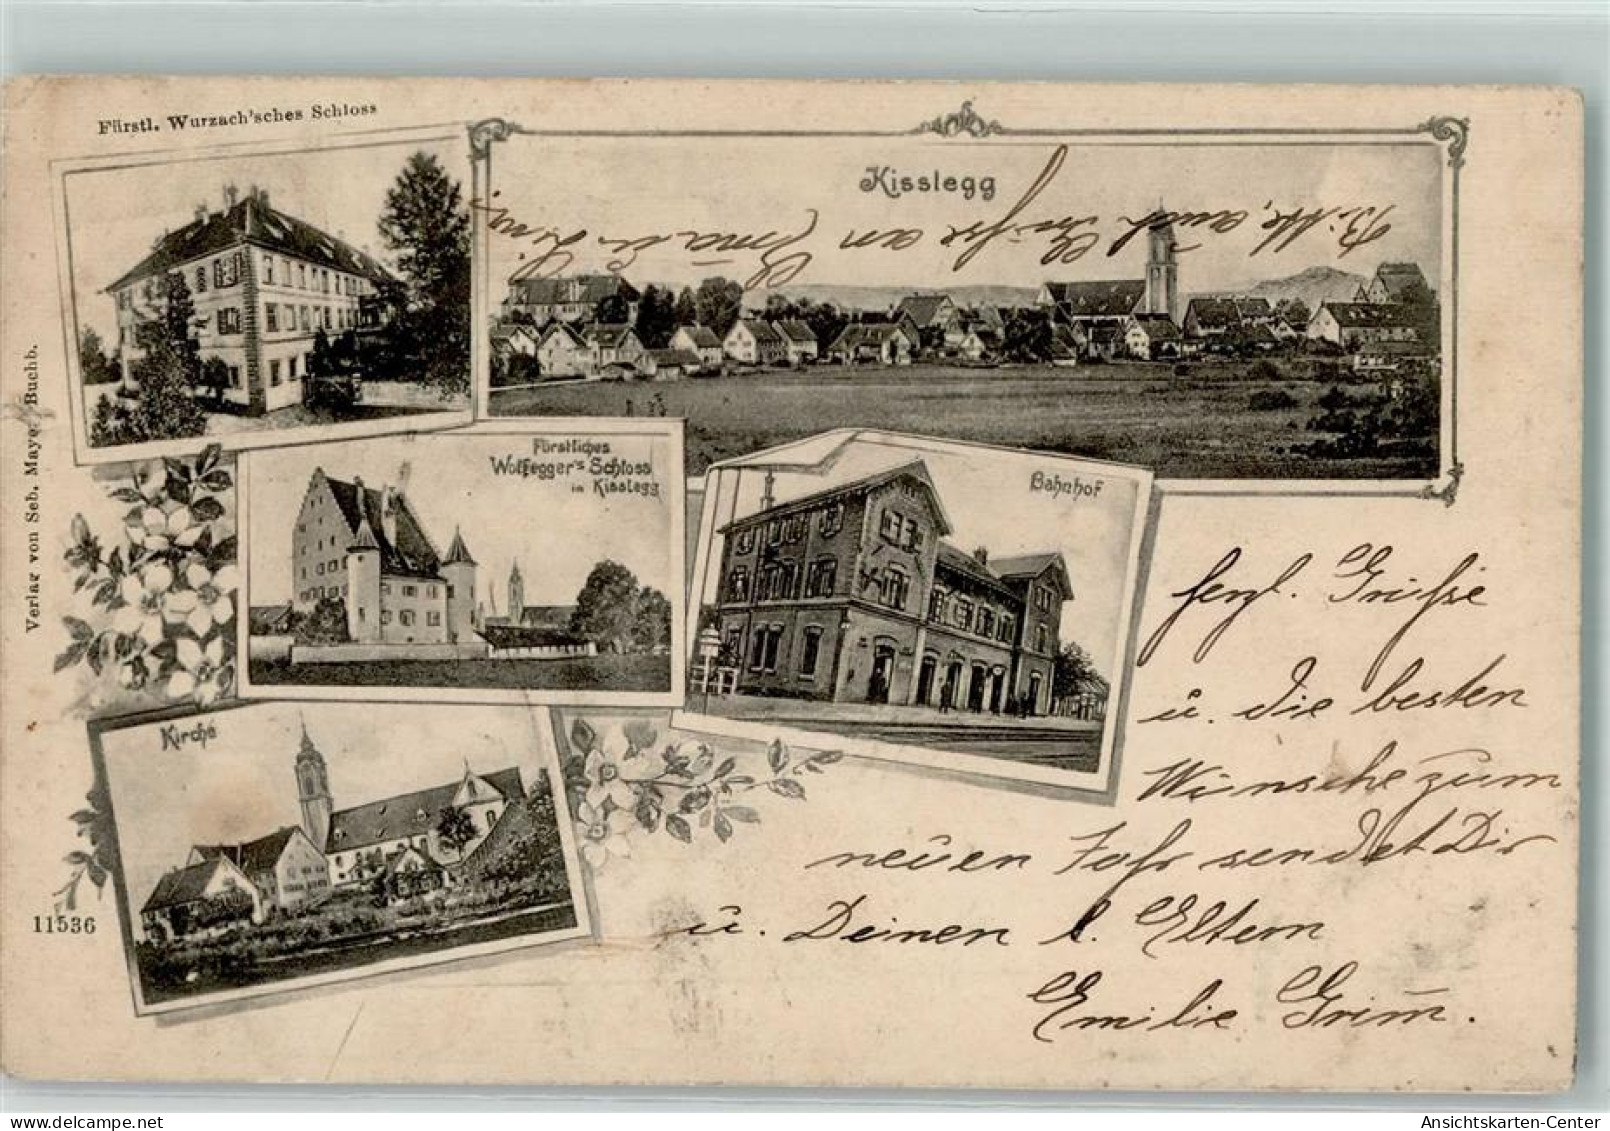 Fürstl. Wurzach'sches Schloss
Kisslegg
Bitte, auch Grüße an
Verlag von Seb. Mayer, Buchb.
Fürstliches
Wolfegger's Schloss
in Kisslegg
Bahnhof
Kirche
11536
herzl. Grüße
u. die besten
Wünsche zum
neuen Jahr sendet Dir
u. Deinen l. Eltern
Emilie Grimm.
Ansichtskarten-Center